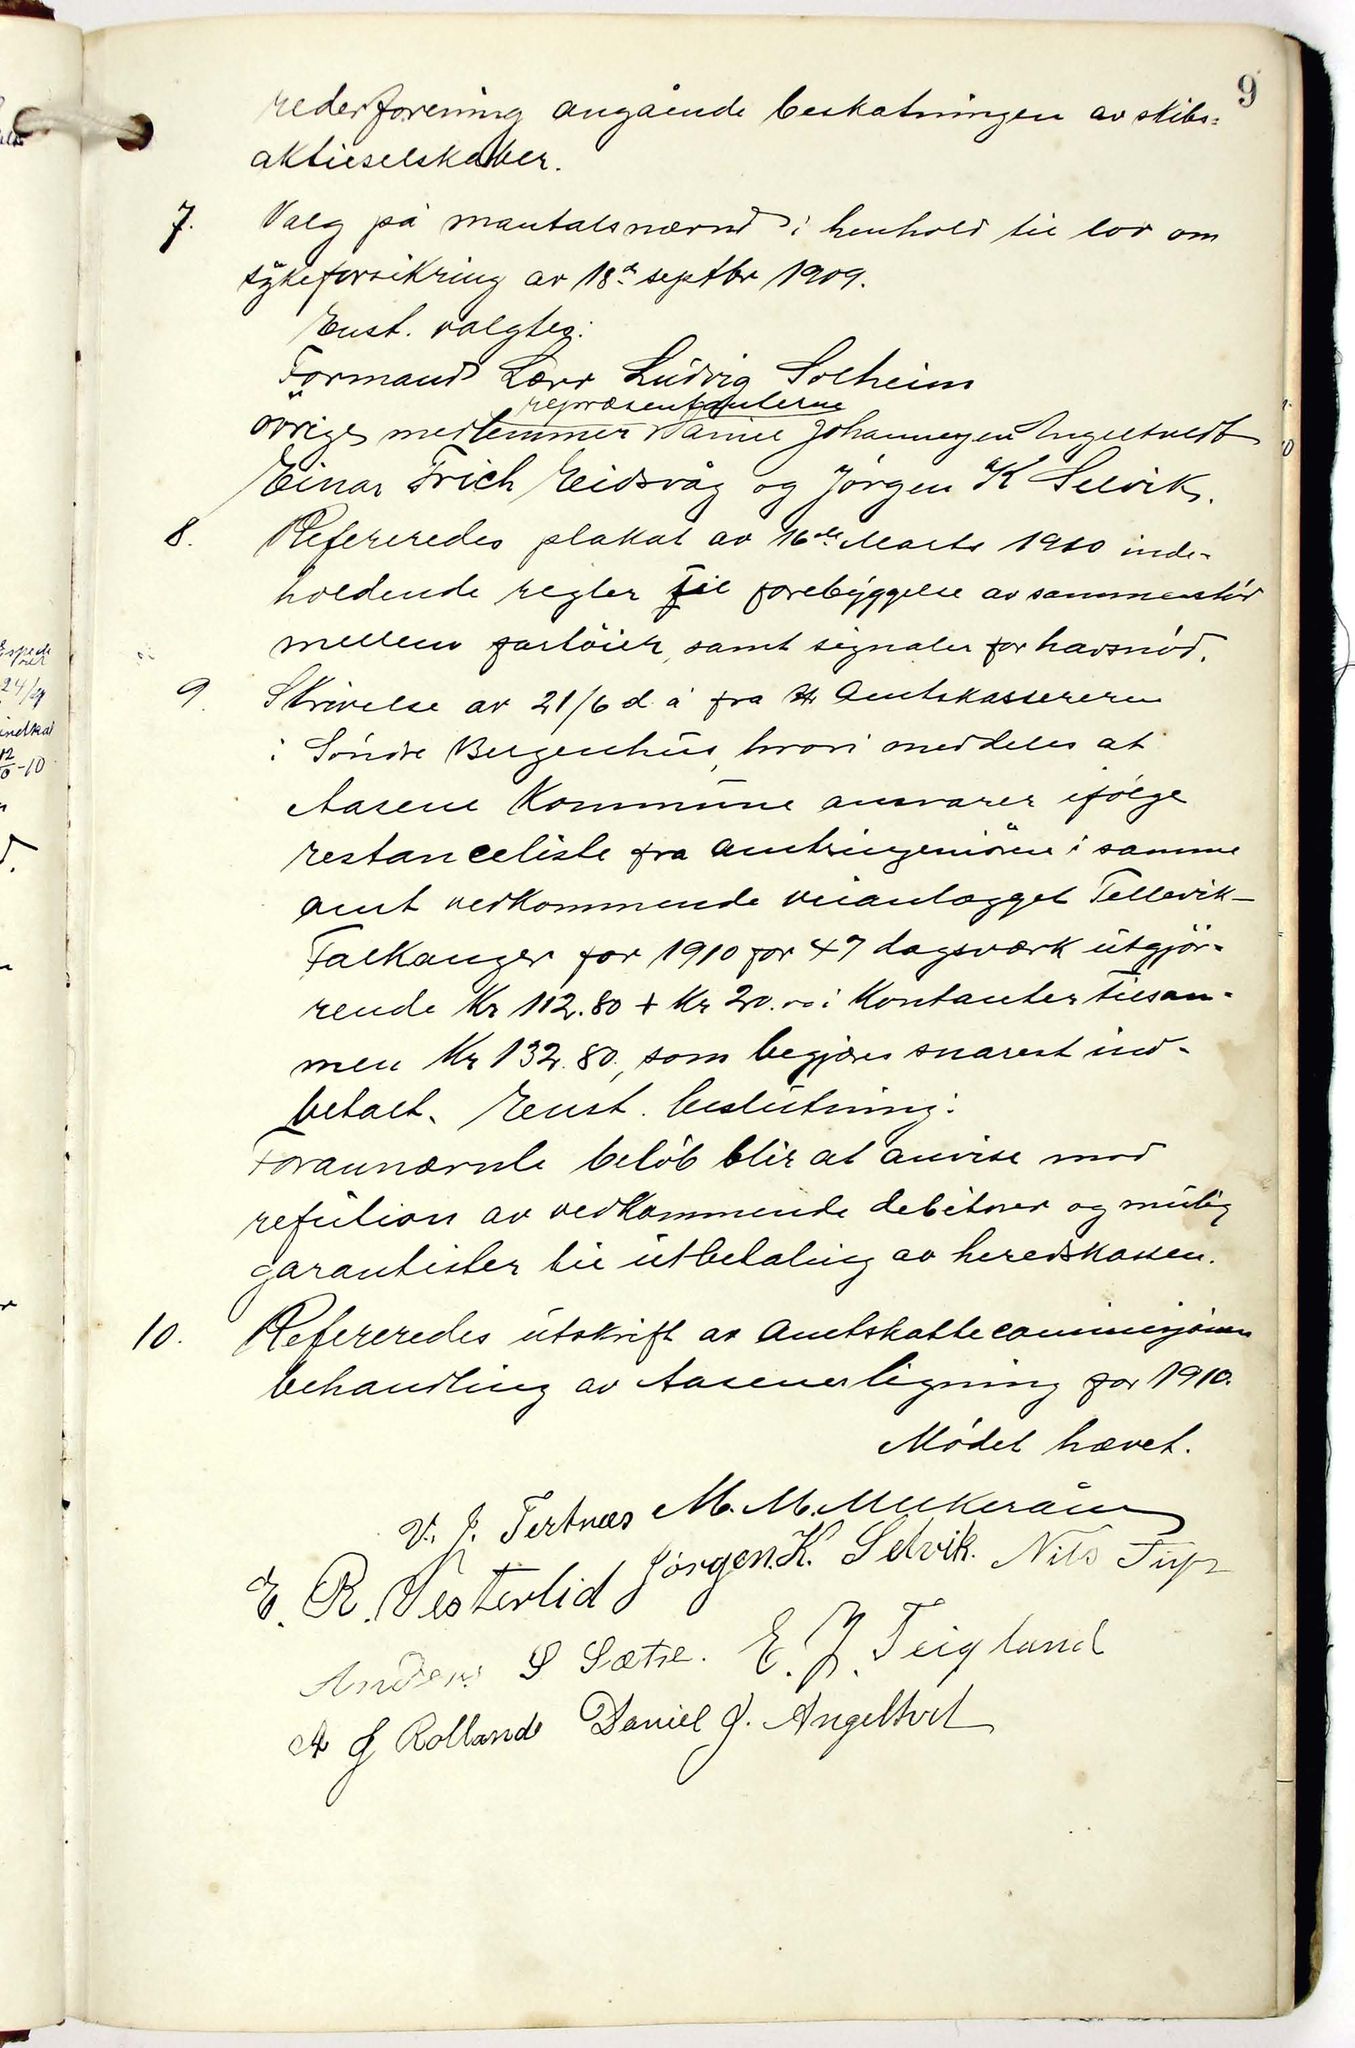 9
rederforening angående beskatningen av skibs=
aktieselskaber.
7. Valg på mantalsnævnd i henhold til lov om
sykeforsikring av 18de septbr 1909.
Enst. valgtes:
Formand Lærer Ludvig Solheim
repræsentanterne
övrige medlemmer Daniel Johannesen Angeltvedt
Einar Frich Eidsvåg og Jörgen K Selvik.
8. Refereredes plakat av 16de Marts 1910 inde-
holdende regler til forebyggelse av sammenstöd
mellem fartöier, samt signaler for havsnöd.
9. Skrivelse av 21/6 d. å fra Amtskassereren
i Söndre Bergenhus, hvori meddeles at
Aasene Kommune ansvarer ifölge
restanceliste fra amtsingeniören i samme
amt vedkommende veianlægget Tellevik-
Falkanger for 1910 for 47 dagsværk utgjör-
rende Kr 112.80 + Kr 20.00 i Kontanter tilsam-
men Kr 132.80, som begjæres snarest ind-
betalt. Enst. beslutning:
Forannævnte belöb blir at anvise mod
refution av vedkommende debitorer og mulig
garantister til utbetaling av heredskassen.
10. Refereredes utskrift av Amtskattecommisjonens
behandling av Aasenes ligning for 1910.
Mödet hævet.
V. J. Tertnæs M. M.
E. R. Vesterlid Jörgen. K. Selvik. Nils
Anders S Sætre. E. J. Teigland
A J Rolland Daniel J. Angeltvet